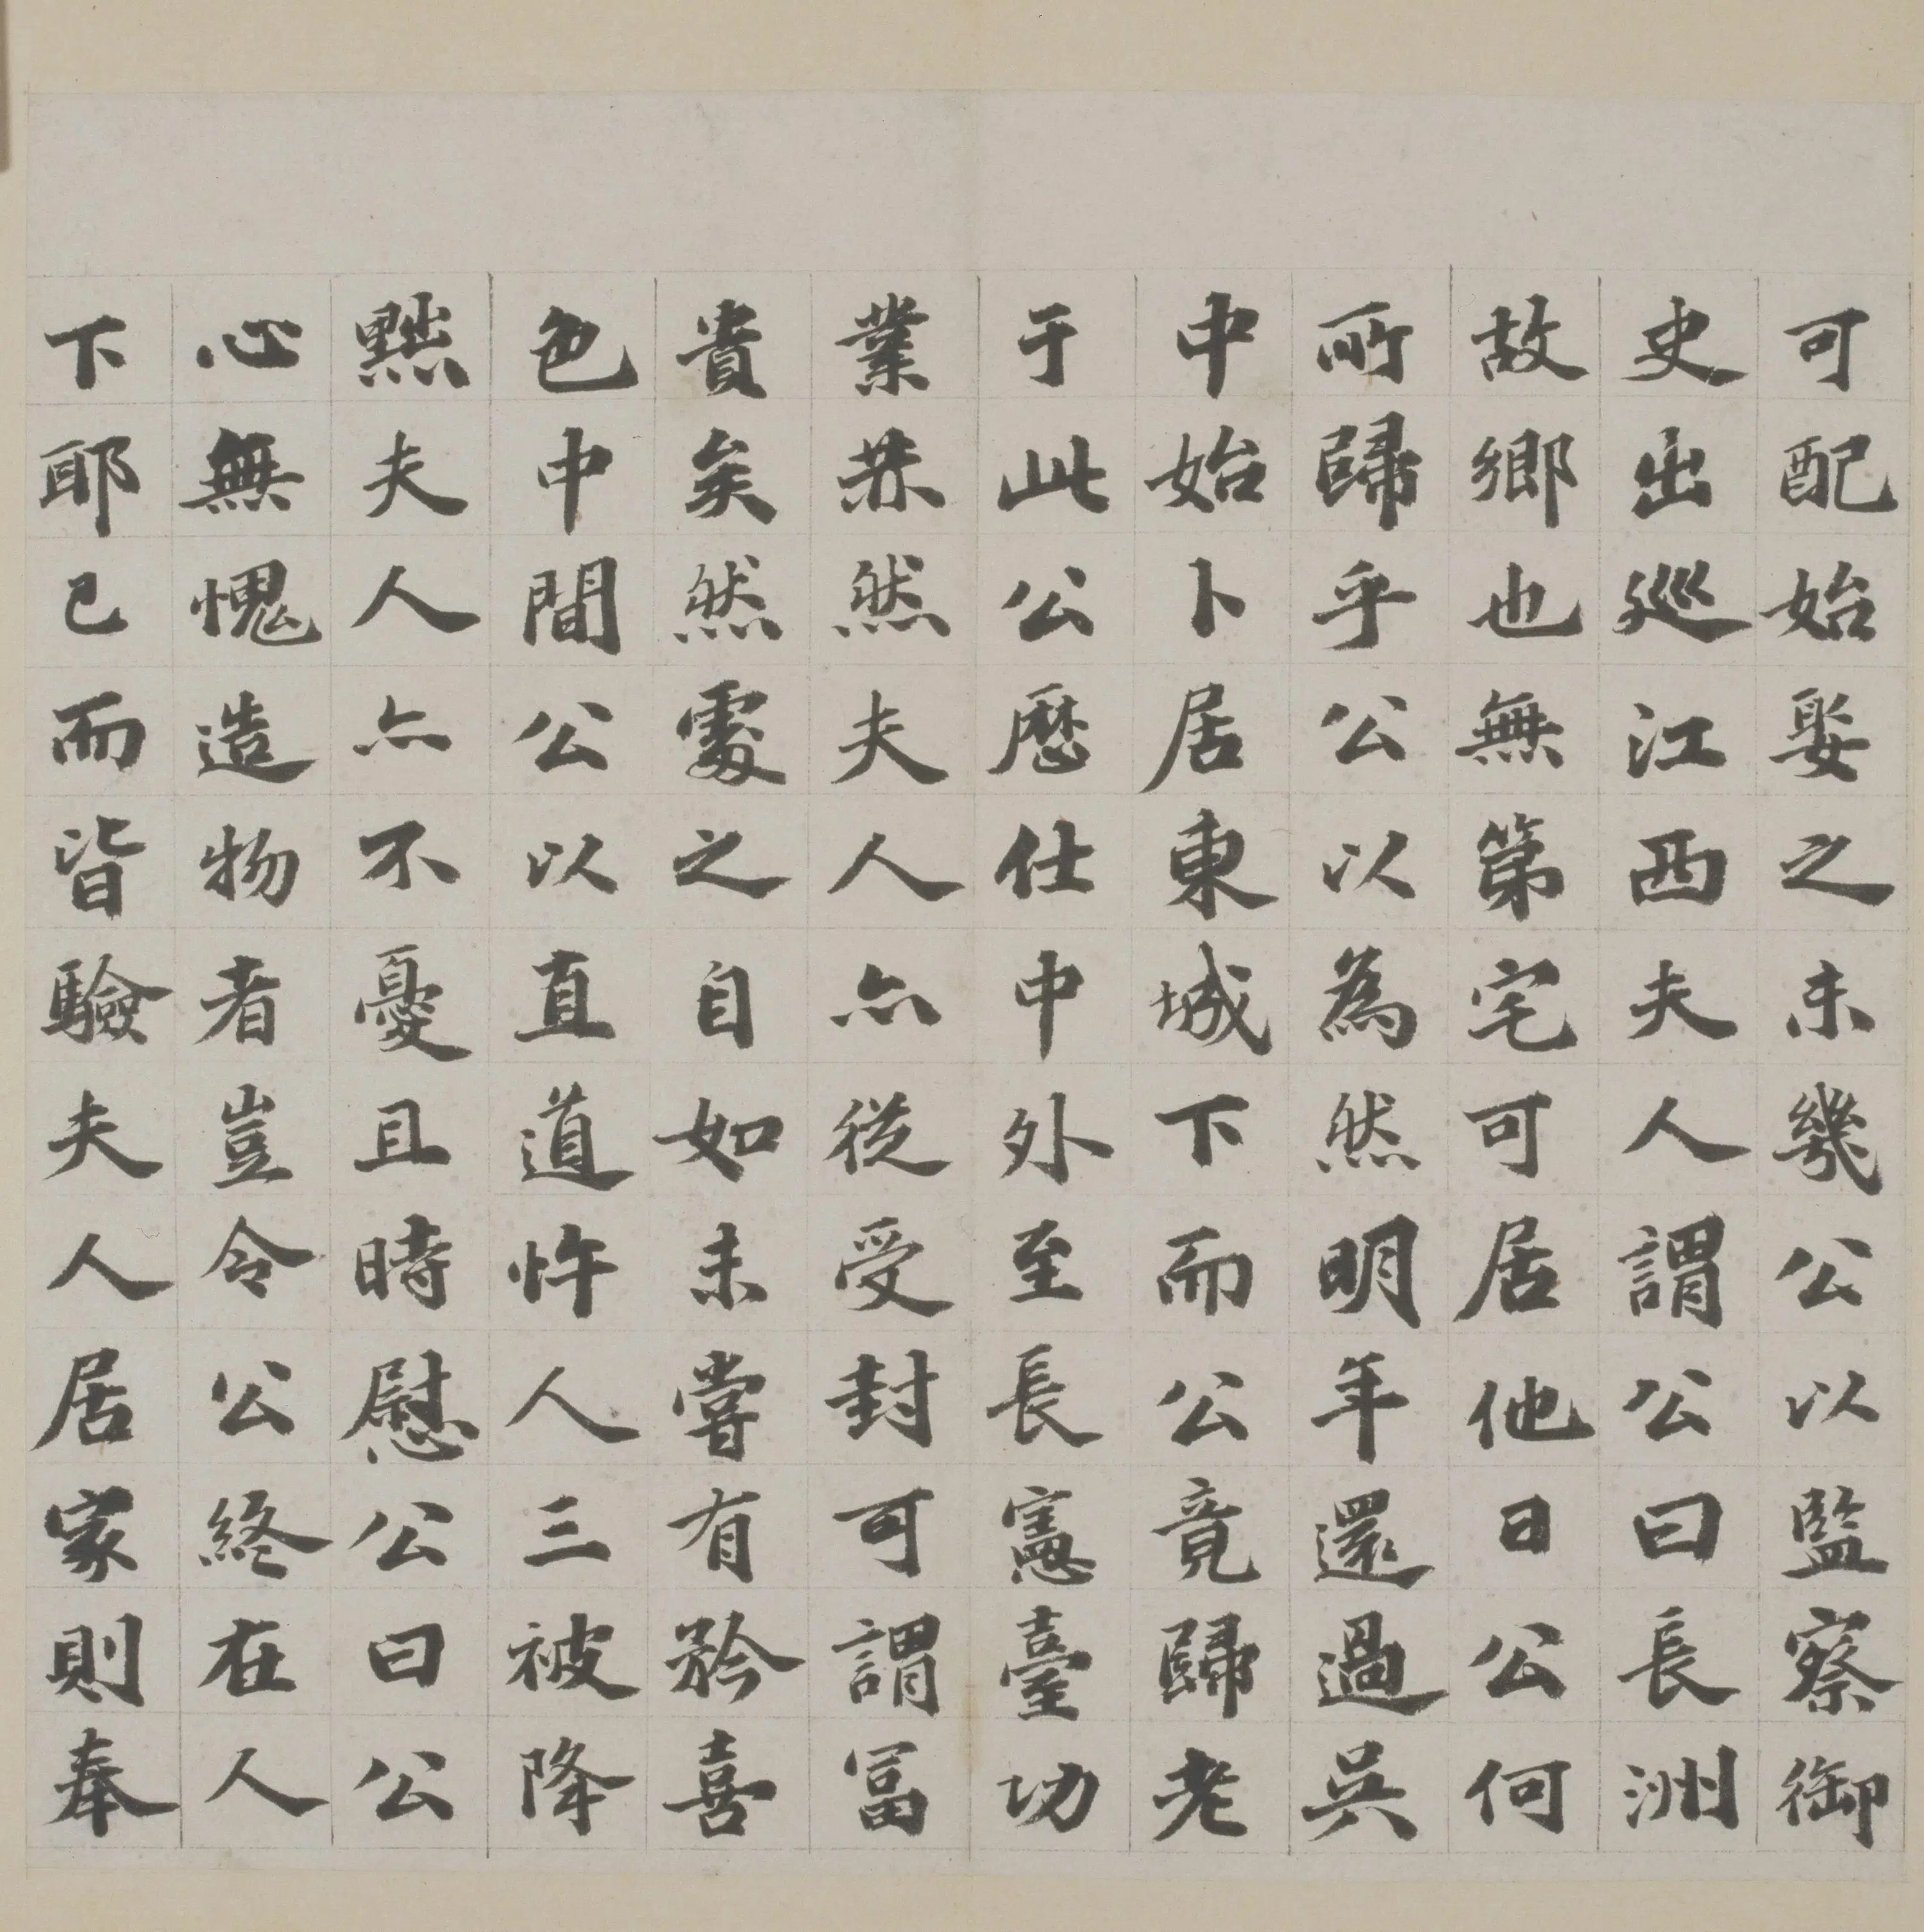 可配始娶之未幾公以監察御
史出巡江西夫人謂公曰長洲
故鄉也無第宅可居他日公何
所歸乎公以為然明年還過吳
中始卜居東城下而公竟歸老
于此公歷仕中外至長憲臺功
業赫然夫人亦從受封可謂冨
貴矣然處之自如未嘗有矜喜
色中間公以直道忤人三被降
黜夫人亦不憂且時慰公曰公
心無愧造物者豈令公終在人
下耶已而皆驗夫人居家則奉